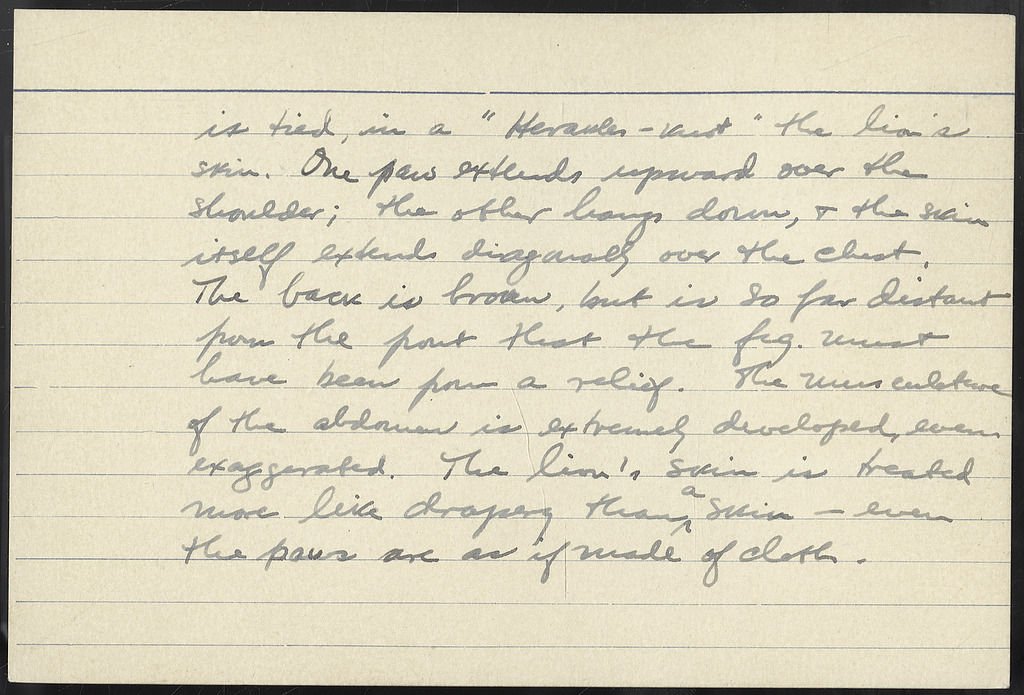 is tied, in a "Herakles-knot" the lion's
skin. One paw extends upward over the
shoulder; the other hangs down, + the skin
itself extends diagonally over the chest.
The back is broken, but is so far distant
from the front that the fig. must
have been from a relief. The musculature
of the abdomen is extremely developed, even
exaggerated. The lion's skin is treated
more like drapery than a skin - even
the paws are as if made of cloth.